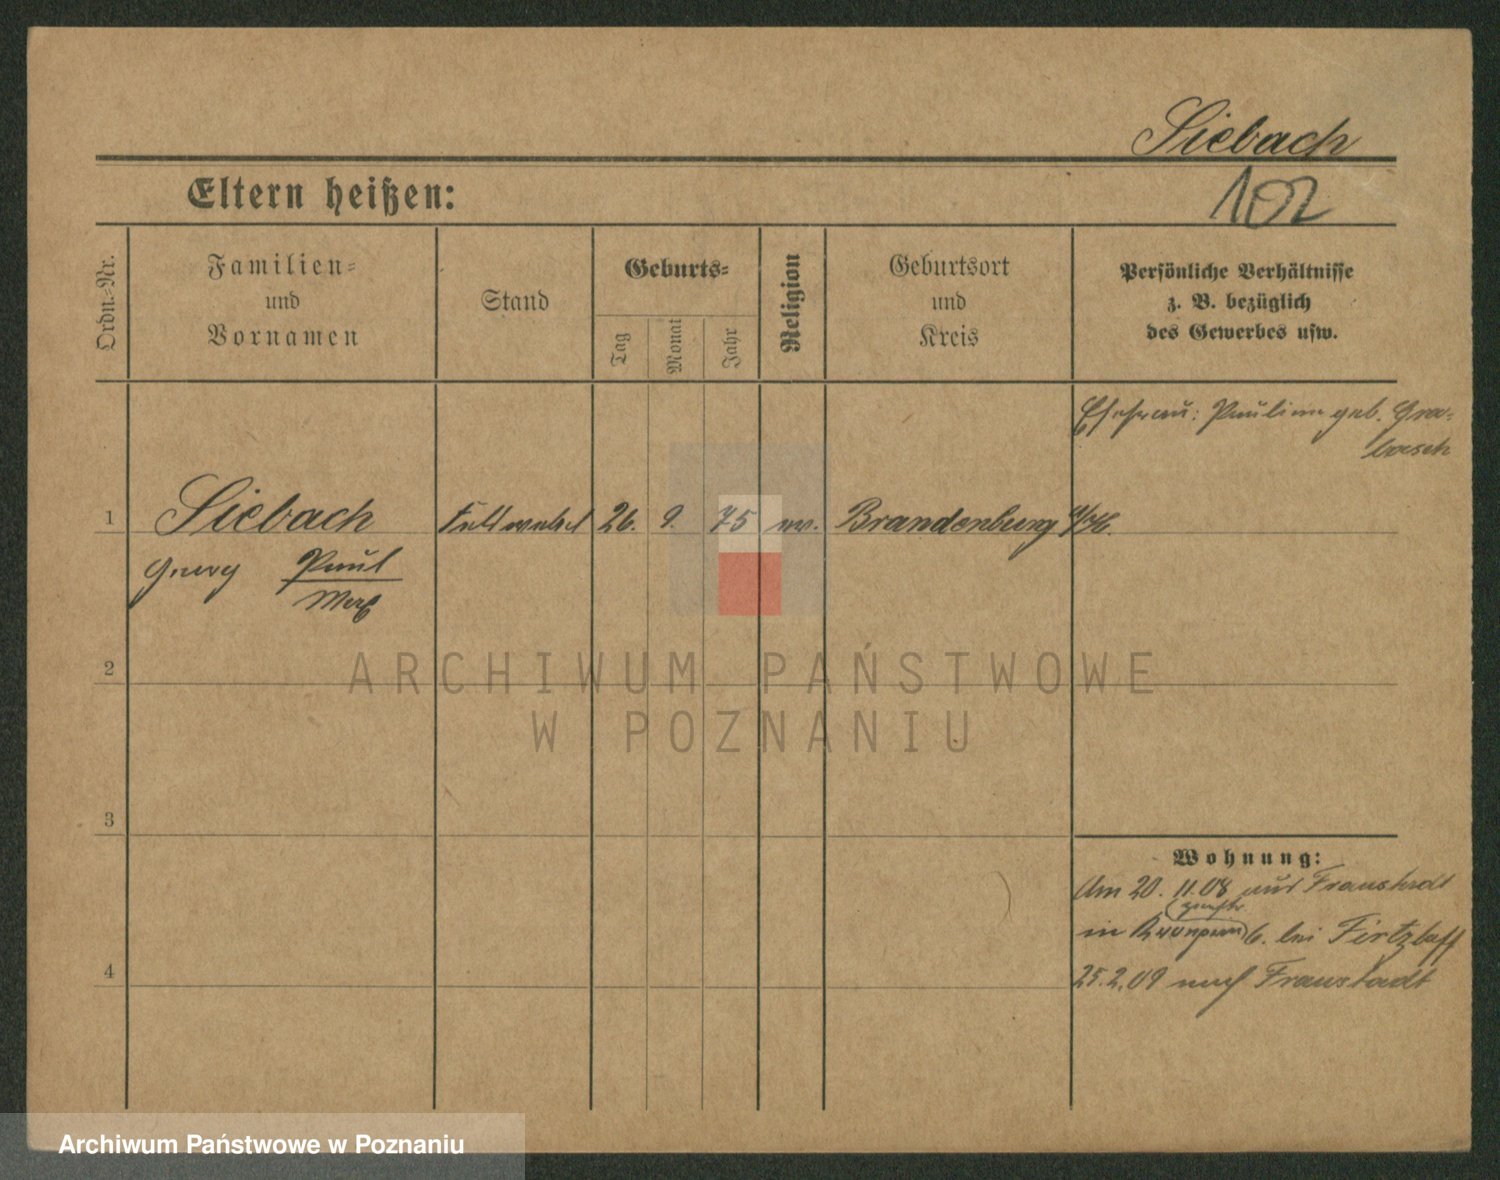 Siebach
102
Eltern heißen:
Ordn.=Nr.
Familien=
und
Vornamen
Stand
Geburts=
Tag
Monat
Jahr
Religion
Geburtsort
und
Kreis
Persönliche Verhältnisse
z. B. bezüglich
des Gewerbes usw.
Ehefrau: Pauline geb. Gra-
1 Siebach Feldwebel 26. 9. 75 ev. Brandenburg a/H.
Georg Paul
Max
2
3
4
Wohnung:
Am 20. 11.08 aus Fraustadt
in 6. bei Firtzlaff
25.2.09 nach Fraustadt
ARCHIWUM PAŃSTWOWE
W POZNANIU
Archiwum Państwowe w Poznaniu